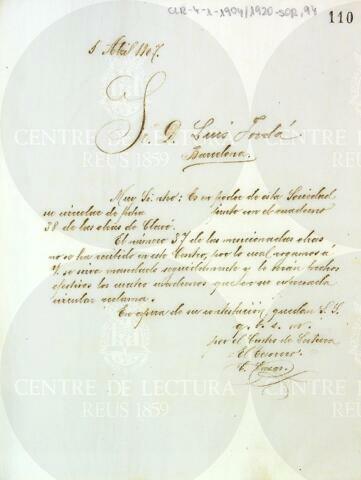 CLR-4-1-1904/1920-SOR,94
110
5 Abril 1907.
Sr. D. Luis Tordá
Barcelona.
Muy Sr. ntro: Es en poder de esta Sociedad
su circular de fecha junto con el cuaderno
38 de las obras de Clavé.
El número 37 de las mencionadas obras
no se ha recibido en este Centro, por lo cual rogamos á
V. se sirva mandarlo seguidamente y le serán hechos
efectivos los cuatro cuadernos que en su
circular reclama.
En espera de su contestación, quedan S. S.
q. b. s. m.
por el Centro de Lectura
El Tesorero
CENTRE DE LECTURA
REUS 1859
CENTRE DE LECTURA
REUS 1859